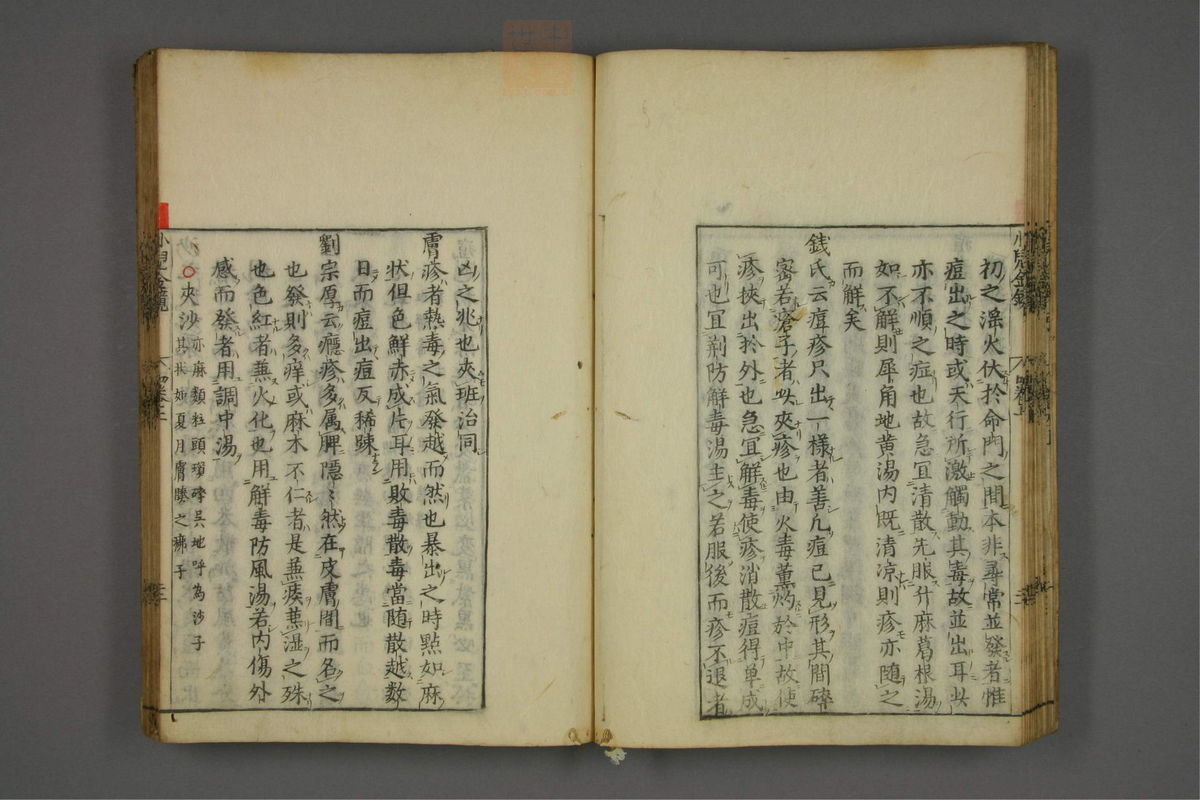 初之淫火伏於命門之間本非尋常並發者惟
痘出之時或天行所激觸動其毒故並出耳此
亦不順之症也故急宜清散先服升麻葛根湯
如不解則犀角地黄湯内既清凉則疹亦随之
而解矣
錢氏云疽疹只出一樣者善凢痘已見形其間碎
密若滄子者此夾疹也由火毒薫灼於中故使
疹挾出於外也急宜解毒使疹消散痘得单成
可也宜荊防解毒湯主之若服後而疹不退者
凶之兆也夾班治同
膚疹者熱毒之氣發越而然也暴出之時點如麻
状但色鮮赤成片耳用敗毒散毒當随散越数
日而痘出痘反稀踈
劉宗厚云癮疹多属脾隱〻然在皮膚間而名之
也發則多痒或麻木不仁者是兼痰兼湿之殊
也色紅者兼火化也用解毒防風湯若内傷外
感而發者用調中湯
○夾沙亦麻類粒頭瑣碎呉地呼為沙子
其状如夏月膚腠之疿子